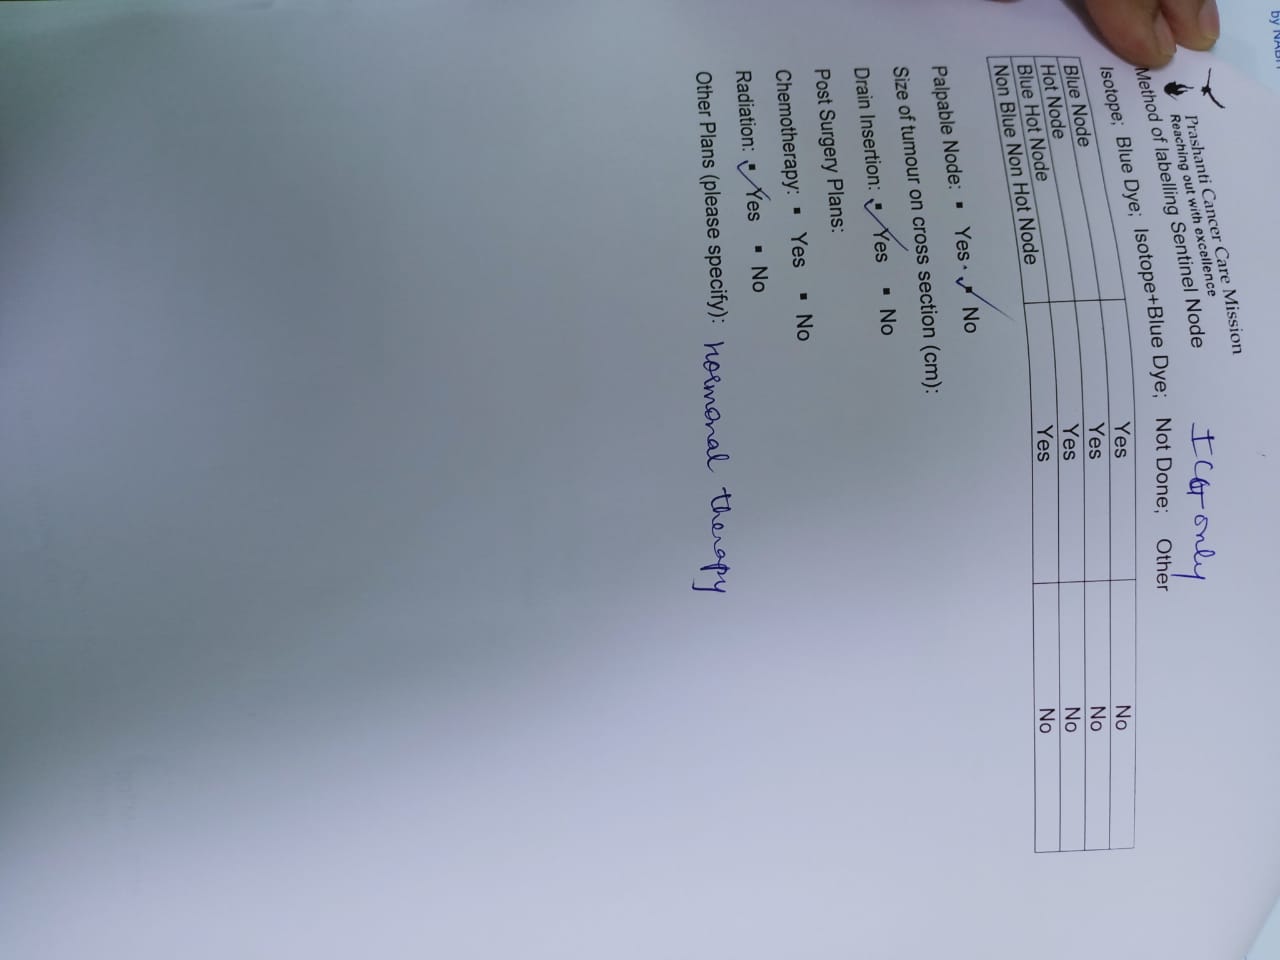 by NABH
Prashanti Cancer Care Mission
Reaching out with excellence
ICG only
Method of labelling Sentinel Node
Isotope; Blue Dye; Isotope+Blue Dye; Not Done; Other
Blue Node Yes No
Hot Node Yes No
Blue Hot Node Yes No
Non Blue Non Hot Node Yes No
Palpable Node: ▪ Yes ▪ ✓ No
Size of tumour on cross section (cm):
Drain Insertion: ▪ ✓ Yes ▪ No
Post Surgery Plans:
Chemotherapy: ▪ Yes ▪ No
Radiation: ▪ ✓ Yes ▪ No
Other Plans (please specify): hormonal therapy